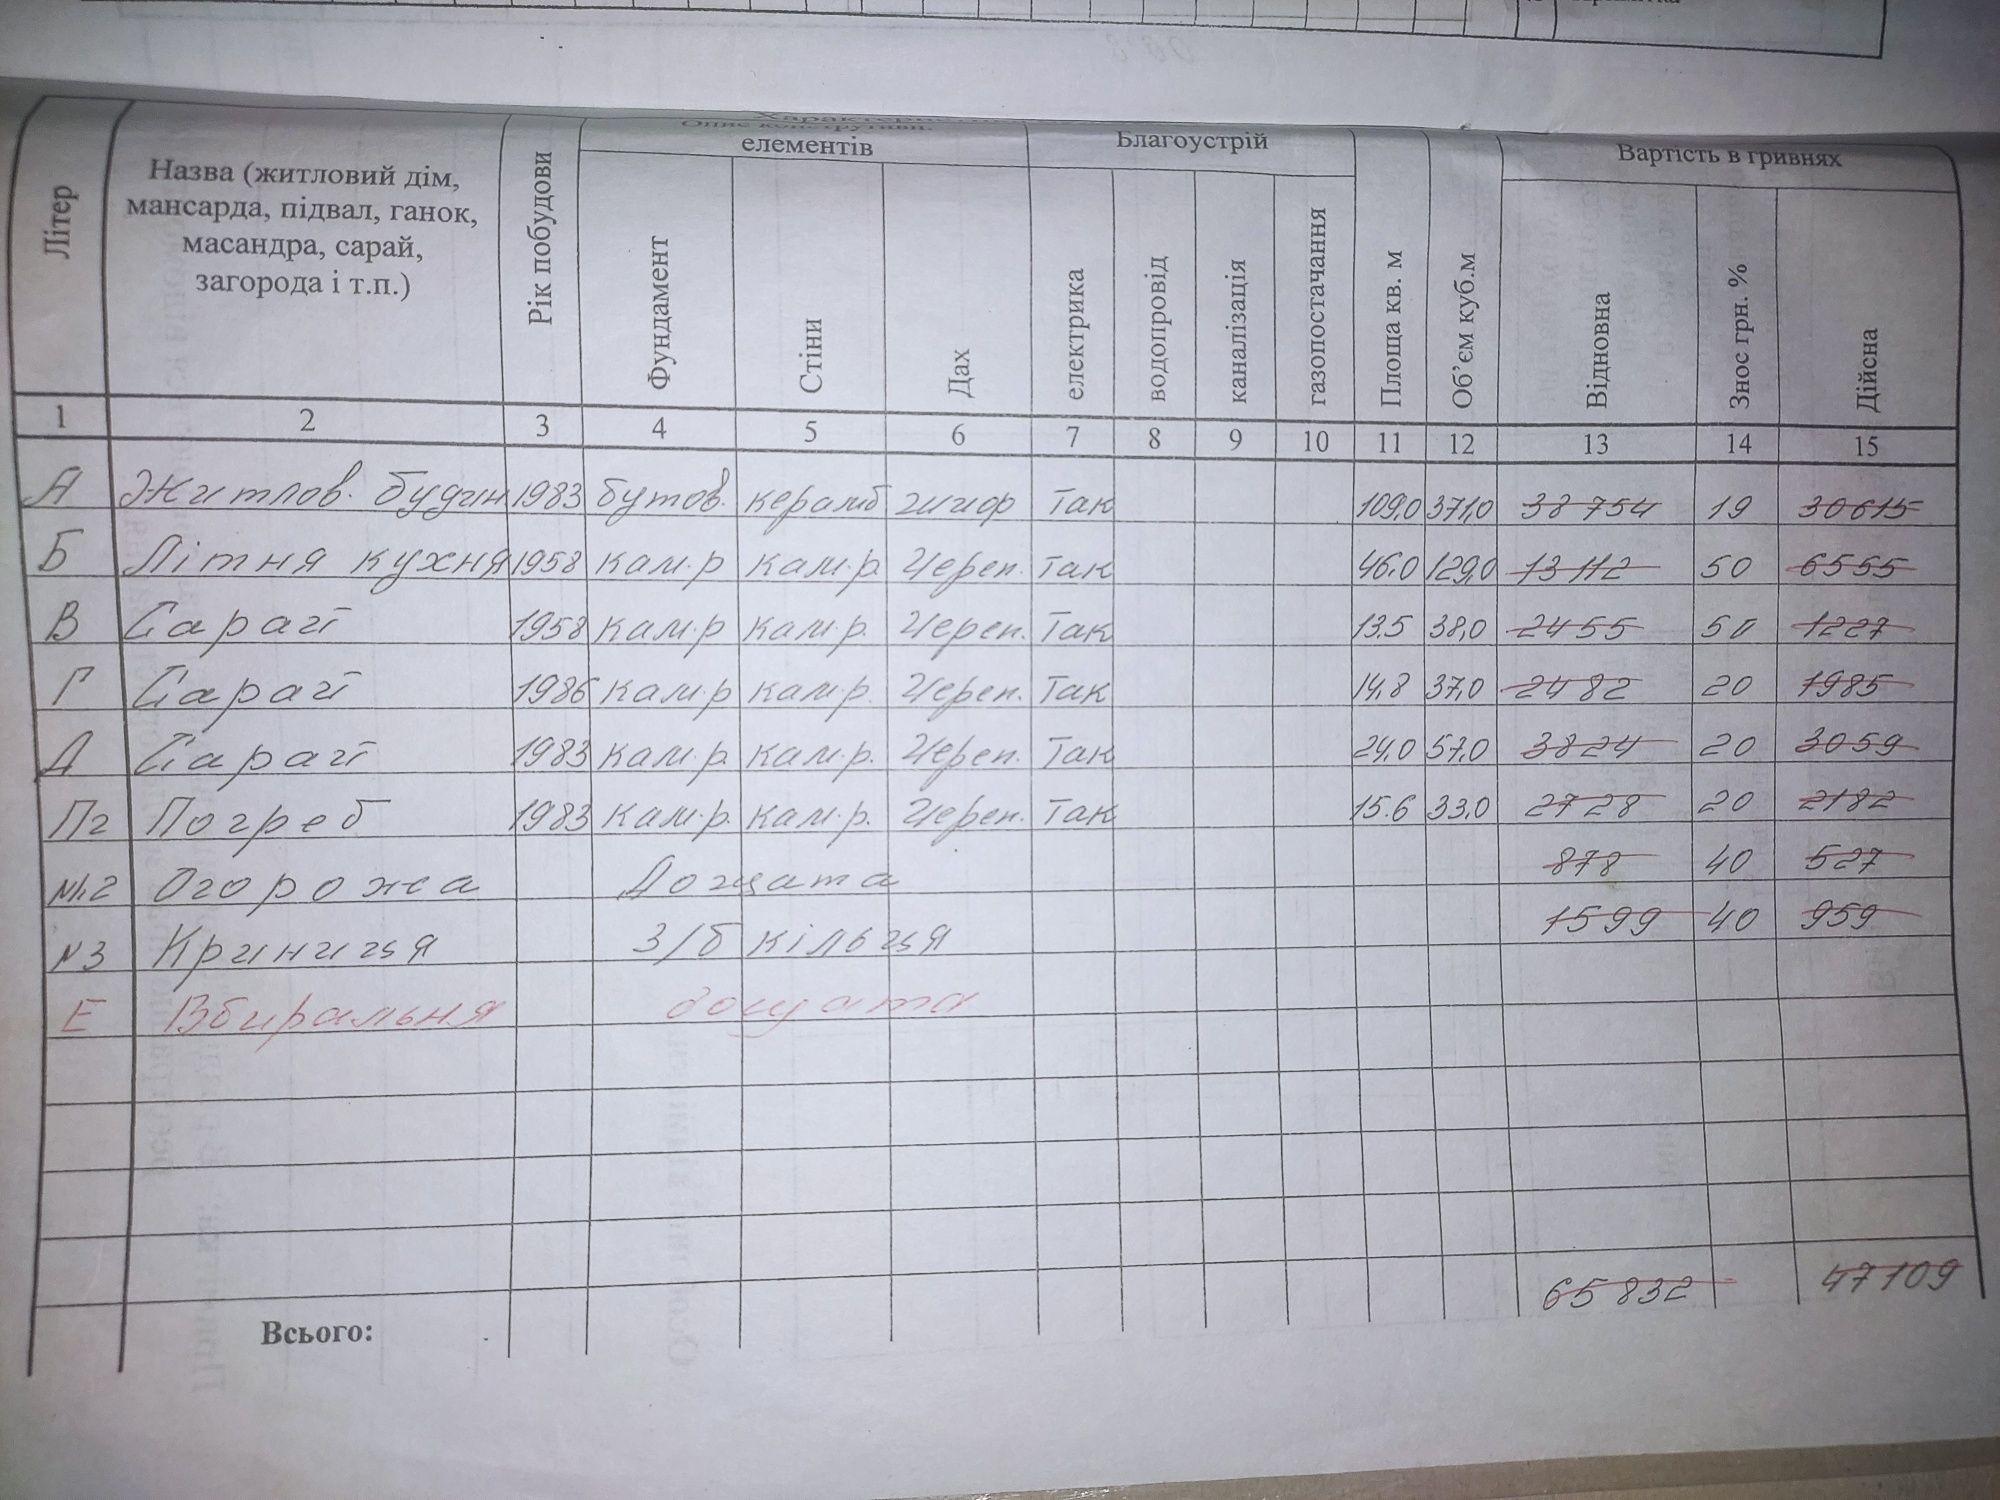 Літер
Назва (житловий дім,
мансарда, підвал, ганок,
масандра, сарай,
загорода і т.п.)
Рік побудови
Опис конструктивн.
елементів
Фундамент
Стіни
Дах
Благоустрій
електрика
водопровід
каналізація
газопостачання
Площа кв. м
Об'єм куб.м
Вартість в гривнях
Відновна
Знос грн. %
Дійсна
1 2 3 4 5 6 7 8 9 10 11 12 13 14 15
А Житлов. будин 1983 бутов. керамб шифр Так 109,0 371,0 38754 19 30615
Б Літня кухня 1958 кам.р кам.р. Череп. Так 46.0 129,0 13112 50 6555
В Сарай 1958 кам.р кам.р. Череп. Так 13.5 38,0 2455 50 1227
Г Сарай 1986 кам.р кам.р. Череп. Так 14,8 37,0 2482 20 1985
Д Сарай 1983 кам.р. кам.р. Череп. Так 24,0 57,0 3824 20 3059
Пг Погреб 1983 кам.р. кам.р. Череп. Так 15.6 33,0 2728 20 2182
№1,2 Огорожа Дощата 878 40 527
№3 Криниця З/б кільця 1599 40 959
Е Вбиральня дощата
Всього: 65832 47109